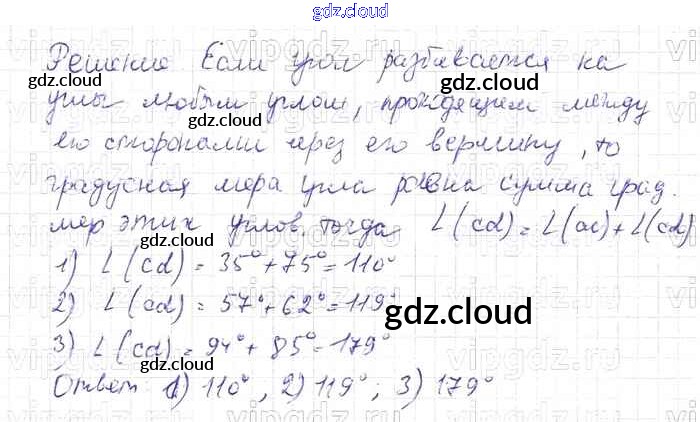 gdz.cloud
Решение Если угол разбивается на
углы любым углом, проходящим между
его сторонами через его вершину, то
градусная мера угла равна сумма град.
мер этих углов. тогда L(cd) = L(ac) + L(cd)
1) L(cd) = 35° + 75° = 110°
2) L(cd) = 57° + 62° = 119°
3) L(cd) = 94° + 85° = 179°
Ответ: 1) 110°, 2) 119°; 3) 179°
gdz.cloud
gdz.cloud
gdz.cloud
gdz.cloud
gdz.cloud
gdz.cloud
gdz.cloud
gdz.cloud
gdz.cloud